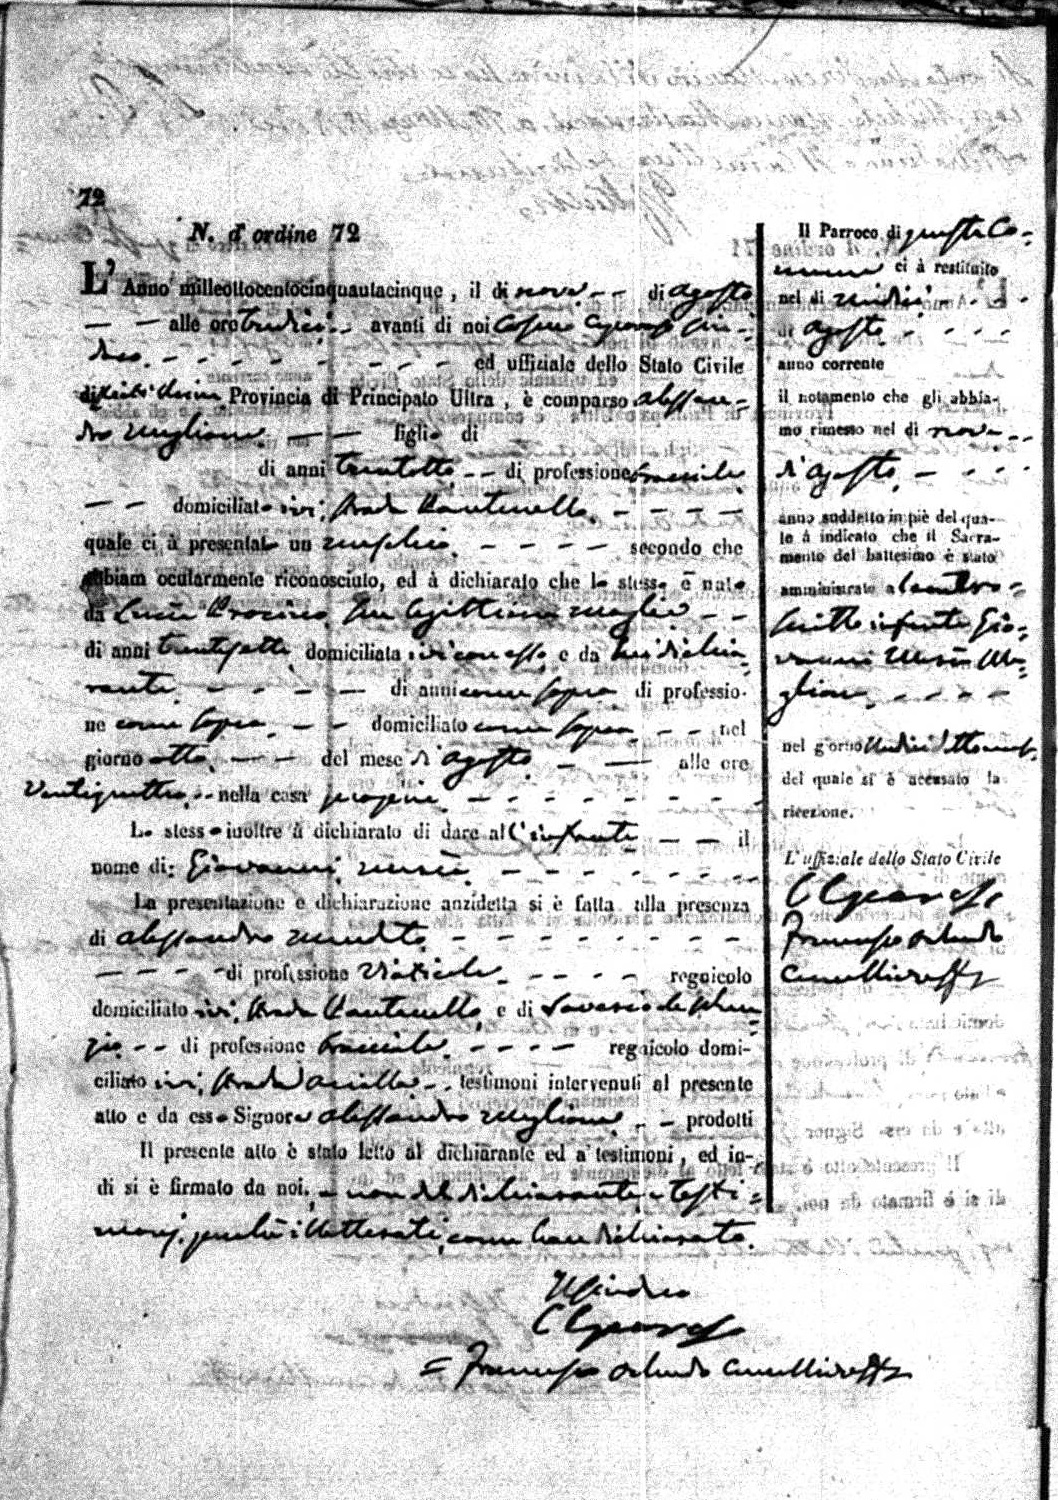 72
N. d' ordine 72
L' Anno milleottocentocinquantacinque, il di nove - - di Agosto
- - alle ore tredici - - avanti di noi
daco - - - - - - - - ed uffiziale dello Stato Civile
di Provincia di Principato Ultra, è comparso Alessan-
dro Miglione - - figlio di
di anni trentotto - - di professione bracciale
- - domiciliato ivi, Strada - - - -
quale ci à presentato un maschio - - - - secondo che
abbiam ocularmente riconosciuto, ed à dichiarato che lo stesso è nato
da Lucia sua legittima moglie - -
di anni trentasette domiciliata ivi con esso e da lui dichia-
rante - - - - - di anni come sopra di professio-
ne come sopra - - domiciliato come sopra - - nel
giorno otto - - - del mese d' Agosto - - alle ore
ventiquattro - - nella casa propria - - - - - - -
Lo stesso inoltre à dichiarato di dare all'infante - - il
nome di: Giovanni - - - - - - - -
La presentazione e dichiarazione anzidetta si è fatta alla presenza
di Alessandro - - - - - - - -
- - - - di professione - - - - regnicolo
domiciliato ivi, Strada e di Saverio
- - di professione bracciale - - - - regnicolo domi-
ciliato ivi, Strada - - testimoni intervenuti al presente
atto e da esso Signore Alessandro Miglione - - prodotti
Il presente atto è stato letto al dichiarante ed a' testimoni, ed in-
di si è firmato da noi, - non dal dichiarante e testi-
monj, perché illetterati, come han dichiarato.
Il Sindaco
= Francesco Orlando
Il Parroco di questa Co-
mune ci à restituito
nel di undici - - -
di Agosto - - - -
anno corrente
il notamento che gli abbia-
mo rimesso nel di nove - -
d' Agosto - - - -
anno suddetto in piè del qua-
le à indicato che il Sacra-
mento del battesimo è stato
amministrato a
scritto infante Gio-
vanni Mi-
glione - - - -
nel giorno undici detto mese
del quale si è accusato la
ricezione.
L'uffiziale dello Stato Civile
Francesco Orlando